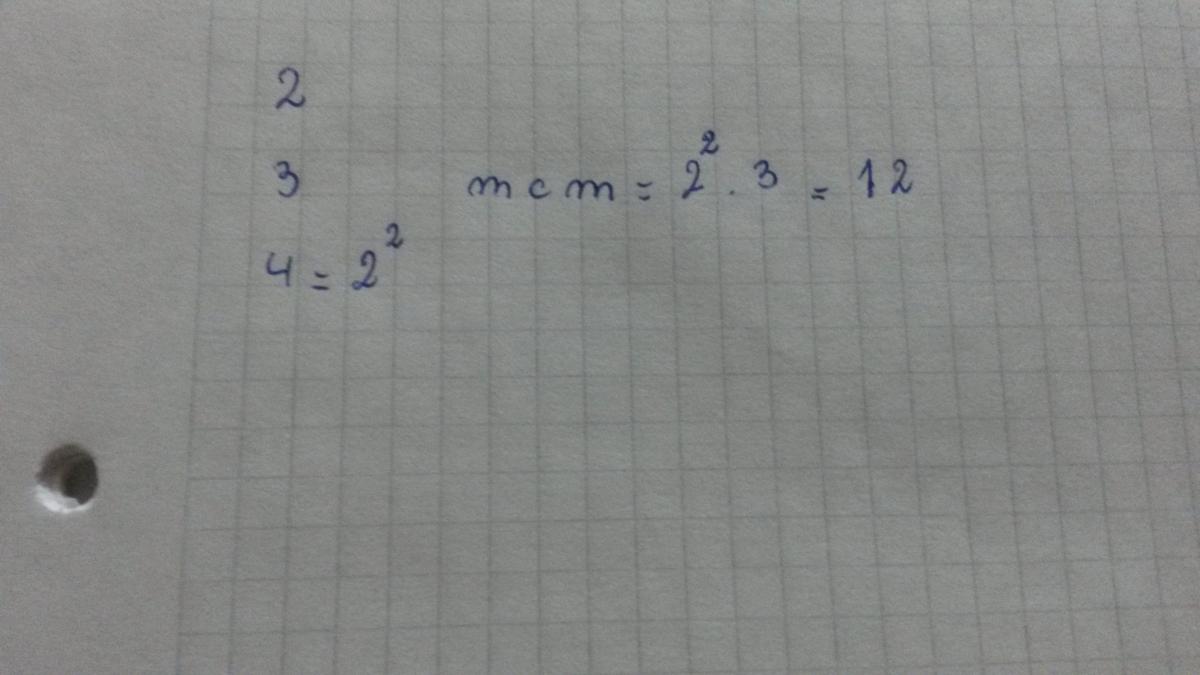 2
3 mcm = 2² . 3 = 12
4 = 2²